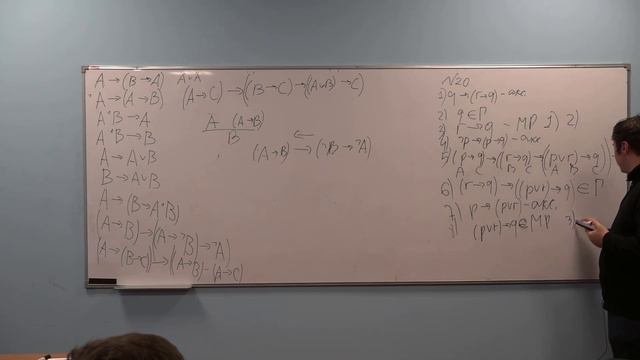 A→(B→A)
A→(A→B)
A^B→A
A^B→B
A→A∨B
B→A∨B
A→(B→A^B)
(A→B)→(A→¬B)→¬A)
(A→(B→C))→((A→B)→(A→C)
A∨A
(A→C)→((B→C)→((A∨B)→C)
A (A→B)
B
←
(A→B)→(¬B→¬A)
N20
1) q→(r→q)-акс.
2) q∈Γ
3) r→q - MP 1) 2)
4) ¬p→(p→q)-акс
5) (p→q)→((r→q)→((p∨r)→q))
A C B C A B C
6) (r→q)→((p∨r)→q)∈Γ
7) p→(p∨r)-акс.
(p∨r)→q∈MP 3)